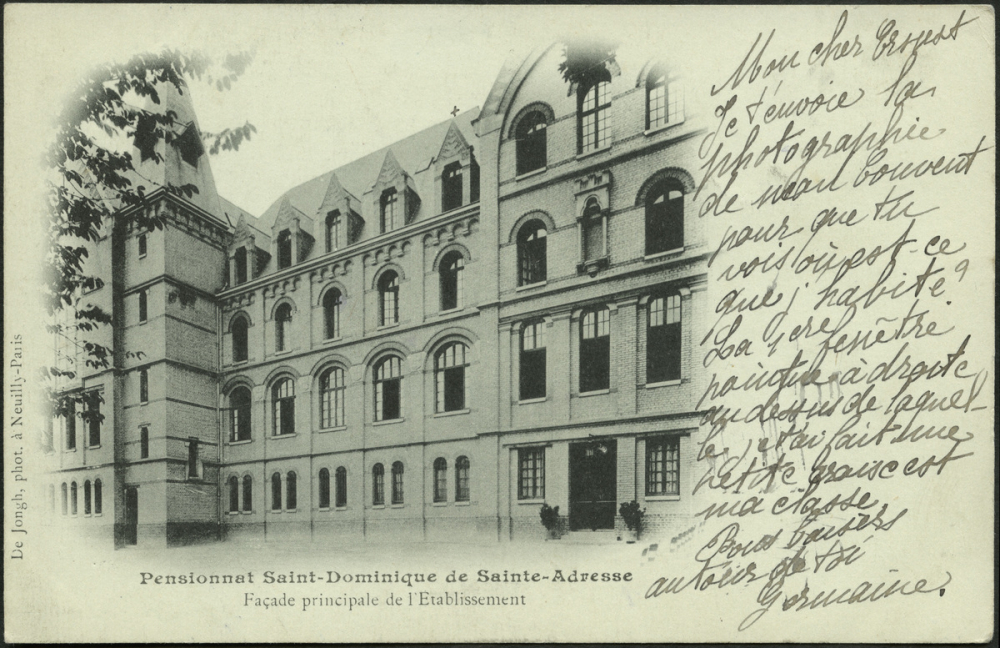 Mon cher Ernest
Je t'envoie la
photographie
de mon couvent
pour que tu
vois où est-ce
que j'habite?
La 1ere fenêtre
pointue à droite
au dessus de laquel-
le j'ai fait une
petite croix c'est
ma classe
Bons baisers
autour de toi
Germaine.
De Jongh, phot. à Neuilly-Paris
Pensionnat Saint-Dominique de Sainte-Adresse
Façade principale de l'Etablissement